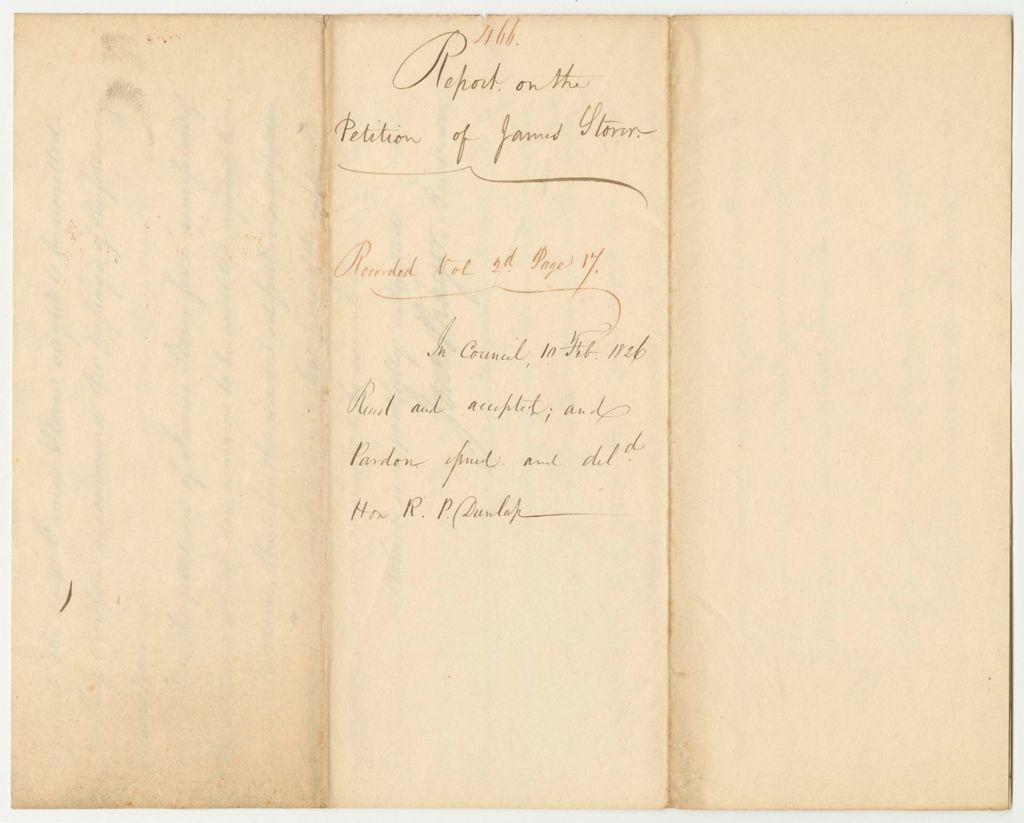 466.
Report on the
Petition of James Storer
Recorded Vol 2d Page 17.
In Council, 10 Feb. 1826
Read and accepted; and
Pardon issued and deld
Hon R. P. Dunlap